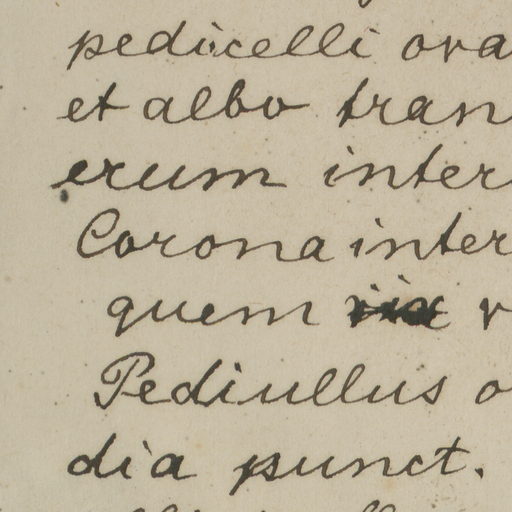 pedicelli ova
et albo tran
erum inter
Corona inter
quem r
Pediullus o
dia punct.